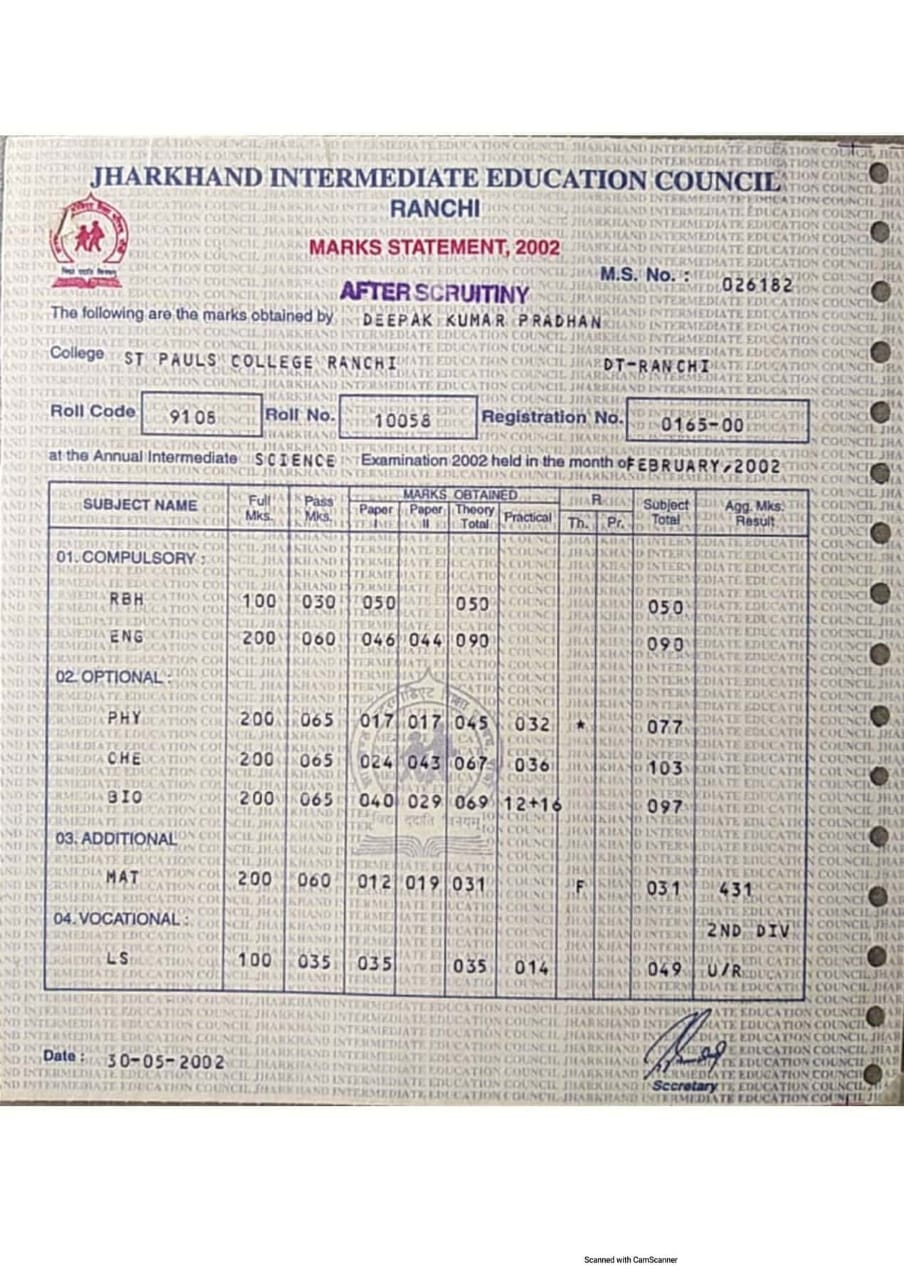 JHARKHAND INTERMEDIATE EDUCATION COUNCIL
RANCHI
MARKS STATEMENT, 2002
M.S. No. : 026182
AFTER SCRUITINY
The following are the marks obtained by DEEPAK KUMAR PRADHAN
College ST PAULS COLLEGE RANCHI DT-RANCHI
Roll Code 9108 Roll No. 10058 Registration No. 0165-00
at the Annual Intermediate SCIENCE Examination 2002 held in the month of FEBRUARY,2002
SUBJECT NAME Full Mks. Pass Mks. MARKS OBTAINED Paper I Paper II Theory Total Practical R Th. Pr. Subject Total Agg. Mks. Result
01. COMPULSORY :
RBH 100 030 050 050 050
ENG 200 060 046 044 090 090
02. OPTIONAL :
PHY 200 065 017 017 045 032 * 077
CHE 200 065 024 043 067 036 103
BIO 200 065 040 029 069 12+16 097
03. ADDITIONAL
MAT 200 060 012 019 031 F 031 431
04. VOCATIONAL : 2ND DIV
LS 100 035 035 035 014 049 U/R
Date : 30-05-2002
Secretary
Scanned with CamScanner